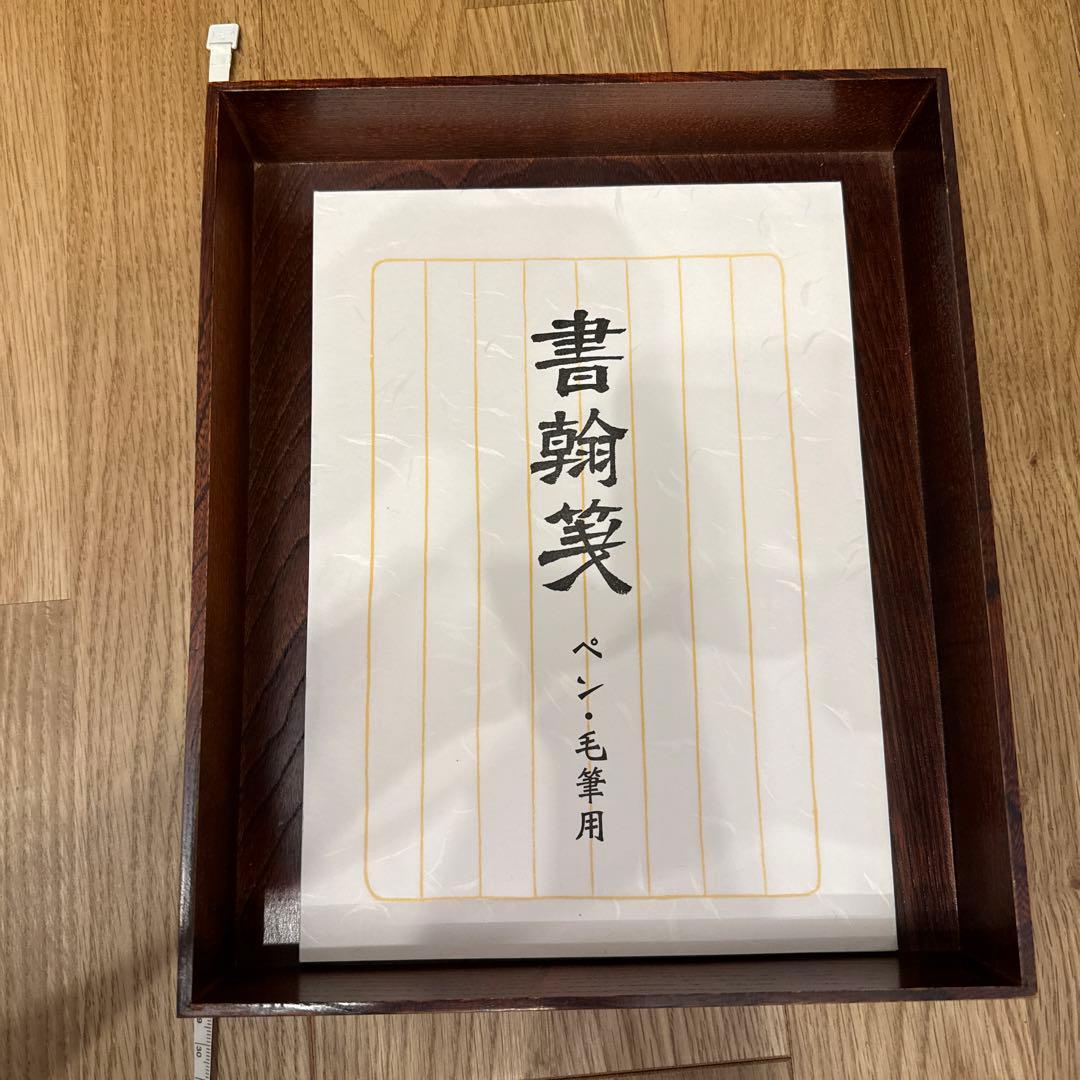 書翰箋
ペン・毛筆用
9
30